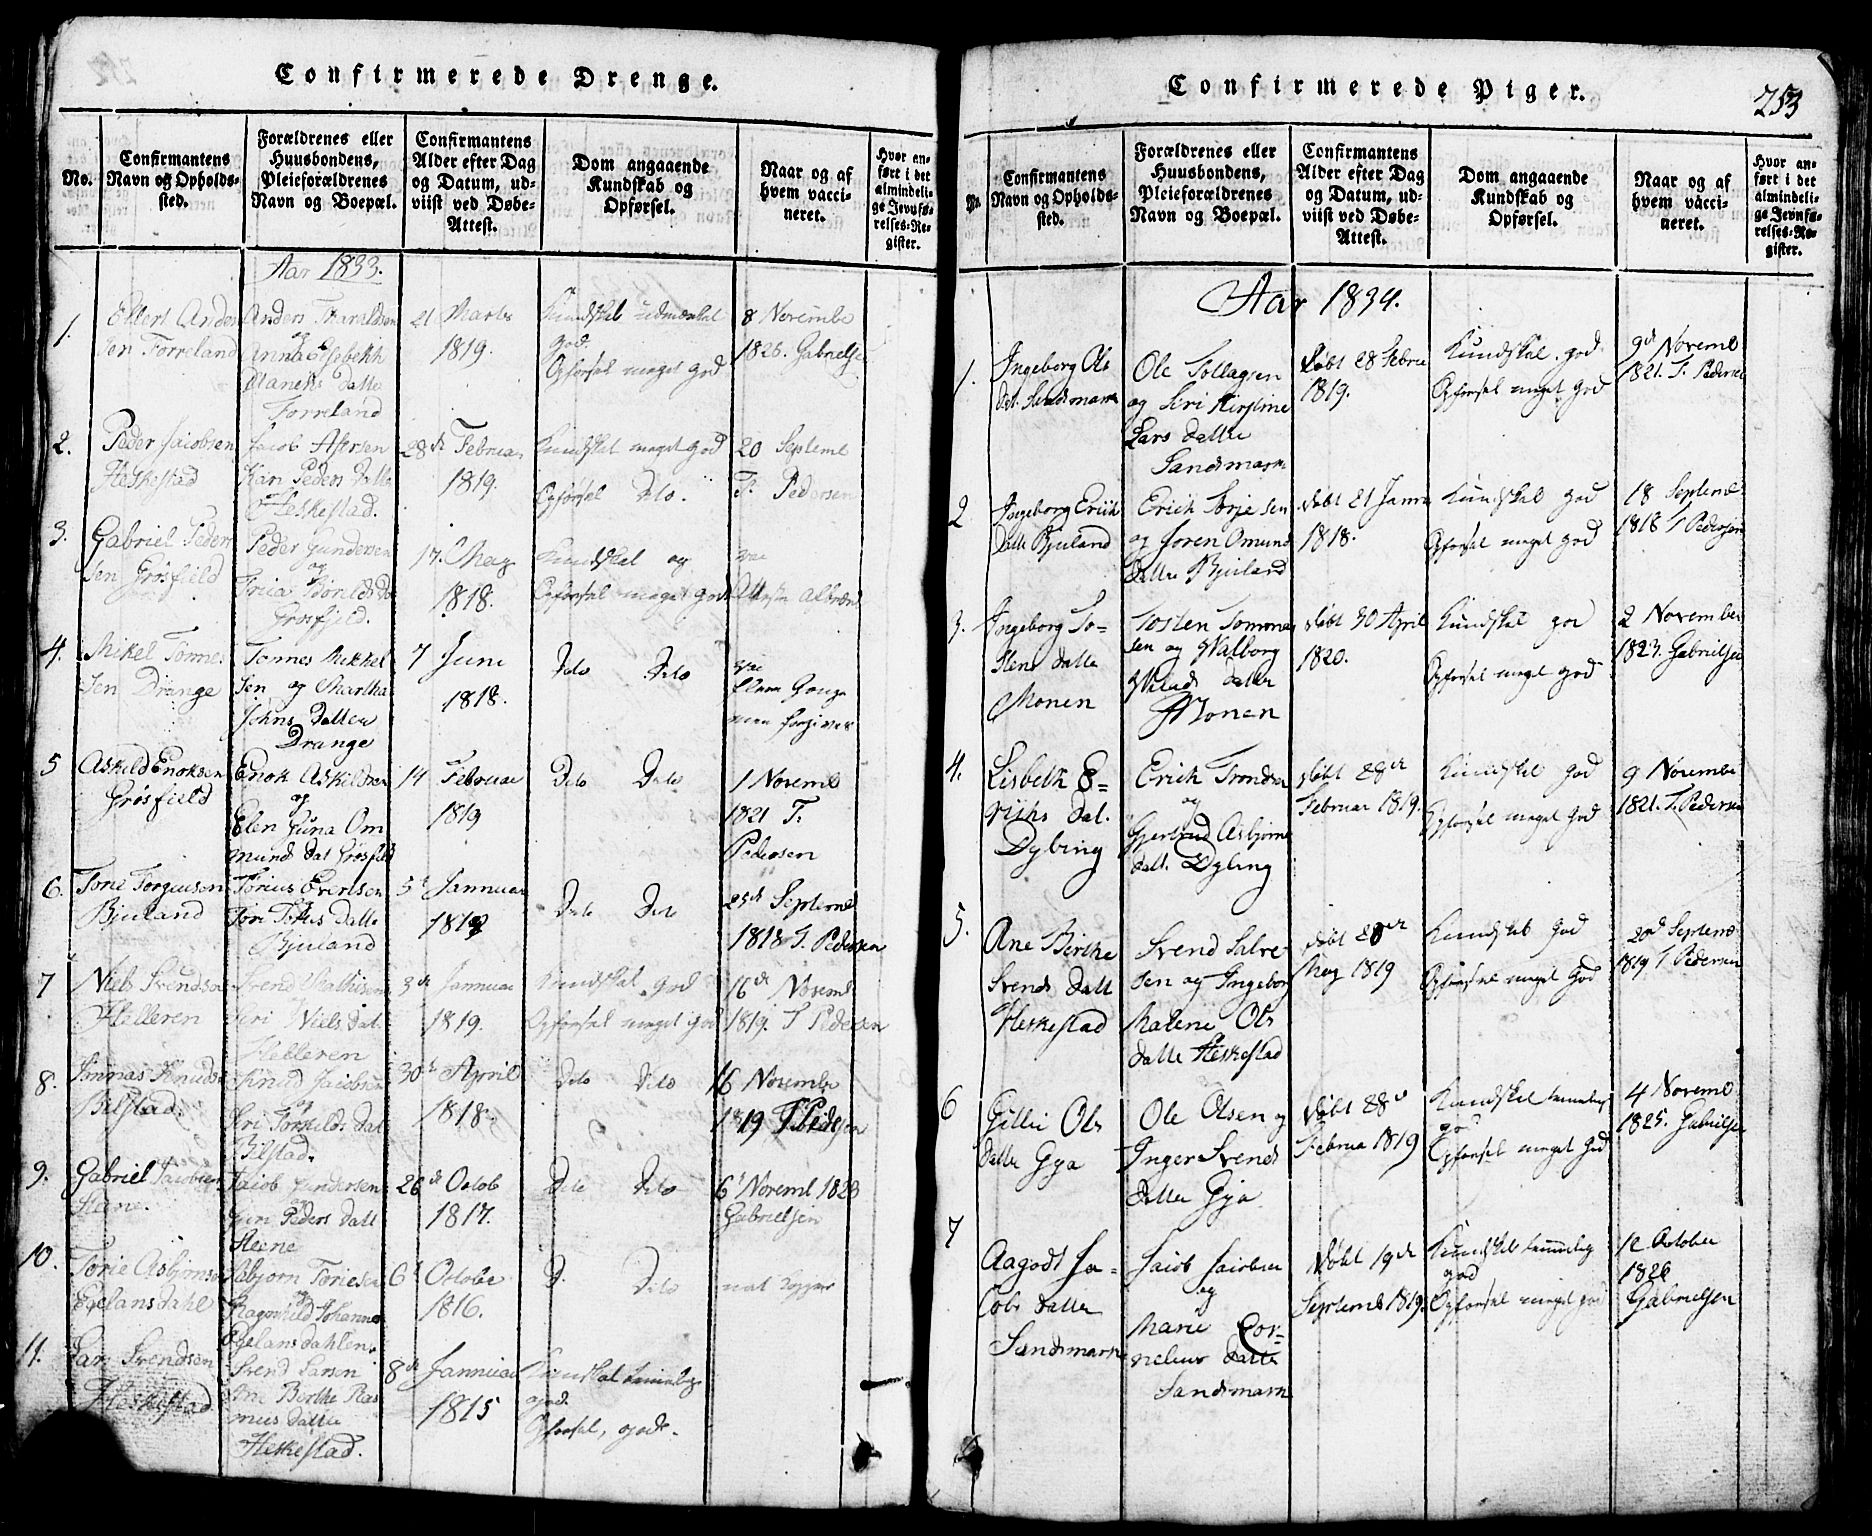 Confirmerede Drenge.
No.
Confirmantens
Navn og Opholds-
sted.
Forældrenes eller
Huusbondens,
Pleieforældrenes
Navn og Boepæl.
Confirmantens
Alder efter Dag
og Datum, ud-
viist ved Døbe-
Attest.
Dom angaaende
Kundskab og
Opførsel.
Naar og af
hvem vacci-
neret.
Hvor an-
ført i det
almindeli-
ge Jevnfø-
relses-Re-
gister.
Aar 1833.
1.
Ellert Anders
sen Torreland
Anden
og
Anna
Datter
Torreland
21 Marts
1819.
Kundskab udmærket
god.
Opførsel meget god
8 Novembe
1826. Gabrielsen
2.
Peder Jacobsen
Heskestad
Jacob
Kari Peders Datte
Heskestad.
28de Februar
1819.
Kundskab meget god
Opførsel Dito.
20 Septemb
T. Pedersen
3.
Gabriel Peder
sen Grøsfield
Peder Gundersen
og
Grøsfield.
17. May
1818.
Kundskab og
Opførsel meget god
4.
Mikel Tønne
sen Drange
Tønnes Mikkel
sen og Martha
Johns Datter
Drange
7 Juni
1818.
Dito Dito
5
Askild Enoksen
Grøsfield
Enok Askildsen
og
Elen Guna Om
mund Dat Grøsfield
14 Februar
1819
Dito Dito
1 Novemb
1821 T.
Pedersen
6.
Tone Torgiusson
Bjuland
Bjuland
5t Jannuar
1819
Dito Dito
25de Septemb
1818 T. Pedersen
7
Niels Svendsen
Helleren
Svend Mathisen
og
Siri Niels Dat.
Helleren
3de Jannuar
1819.
Kundskab god
Opførsel meget god
16de Novemb
1819. T Pedersen
8.
Jonnas Knuds
Bilstad.
Knud Jacobsen
og
Siri Torkilds Dat
Bilstad.
30te April
1818.
Dito Dito
16 Novembe
1819 T. Pedersen
9.
Gabriel Jacobsen
Steene.
Jacob Gundersen
og
Guri Peders Datt
Steene
26de Octob
1817.
Dito Dito
6t Novemb 1823
Gabrielsen
10.
Torie Asbjørnsen
Egelansdahl
Asbjørn Toriesen
og
Ragnhild Johannes
Egelansdahlen.
6t Octobe
1816.
D. Dito
11.
Lars Svendsen
Heskestad
Svend Larsen
Berthe Ras
mus Datte
Heskestad.
8de Jannuar
1815
Kundskab temmelig
god.
Opførsel, godt.
Confirmerede Piger.
253
No.
Confirmantens
Navn og Opholds-
sted.
Forældrenes eller
Huusbondens,
Pleieforældrenes
Navn og Boepæl.
Confirmantens
Alder efter Dag
og Datum, ud-
viist ved Døbe-
Attest.
Dom angaaende
Kundskab og
Opførsel.
Naar og af
hvem vacci-
neret.
Hvor an-
ført i det
almindeli-
ge Jevnfø-
relses-Re-
gister.
Aar 1834.
1.
Ingeborg Ols
Dat. Sandsmark
Ole Tollagsen
og Siri Kirstine
Lars Datte
Sandsmark
døbt 28 Febru
1819.
Kundskab god.
Opførsel meget god
9de Novemb
1821. T. Pedersen
2
Ingeborg Erich
Datte Bjuland
Erich Torjesen
og Joren Omund
Datte Bjuland
døbt 21 Janu
1818.
Kundskab god
Opførsel meget god
18 Septemb
1818 T Pedersen
3.
Ingeborg To=
stens Datte
Monen
Tosten Tommes
sen og Walborg
Datte
Monen
døbt 30 April
1820.
Kundskab god
Opførsel meget god
2 November
1823. Gabrielsen
4.
Lisbeth E=
richs Dat.
Dybing
Erich Trondsen
og
Gjertrud Asbjørns
Datt. Dybing
døbt 28de
Februar 1819.
Kundskab god
Opførsel meget god
9 Novembe
1821. T. Pedersen
5.
Ane Birthe
Svends Datt
Heskestad
Svend Salve
sen og Ingeborg
Malene Ols
Datte Heskestad
døbt 28de
May 1819
Kundskab god
Opførsel meget god
20de Septemb
1819 T Pedersen
6
Gitlie Ols
Datte Gya
Ole Olsen og
Inger Svends
Datte Gya
døbt 28de
Februa 1819
Kundskab temmelig
god
Opførsel meget god
4 Novemb
1825. Gabrielsen
7
Aagodt Ja=
cobs Datte
Sandsmark
Jacob Jacobsen
og
Marie Cor=
nelius Datte
Sandsmark
Døbt 19de
Septemb 1819.
Kundskab temmelig
god
Opførsel meget god
12 October
1826
Gabrielsen